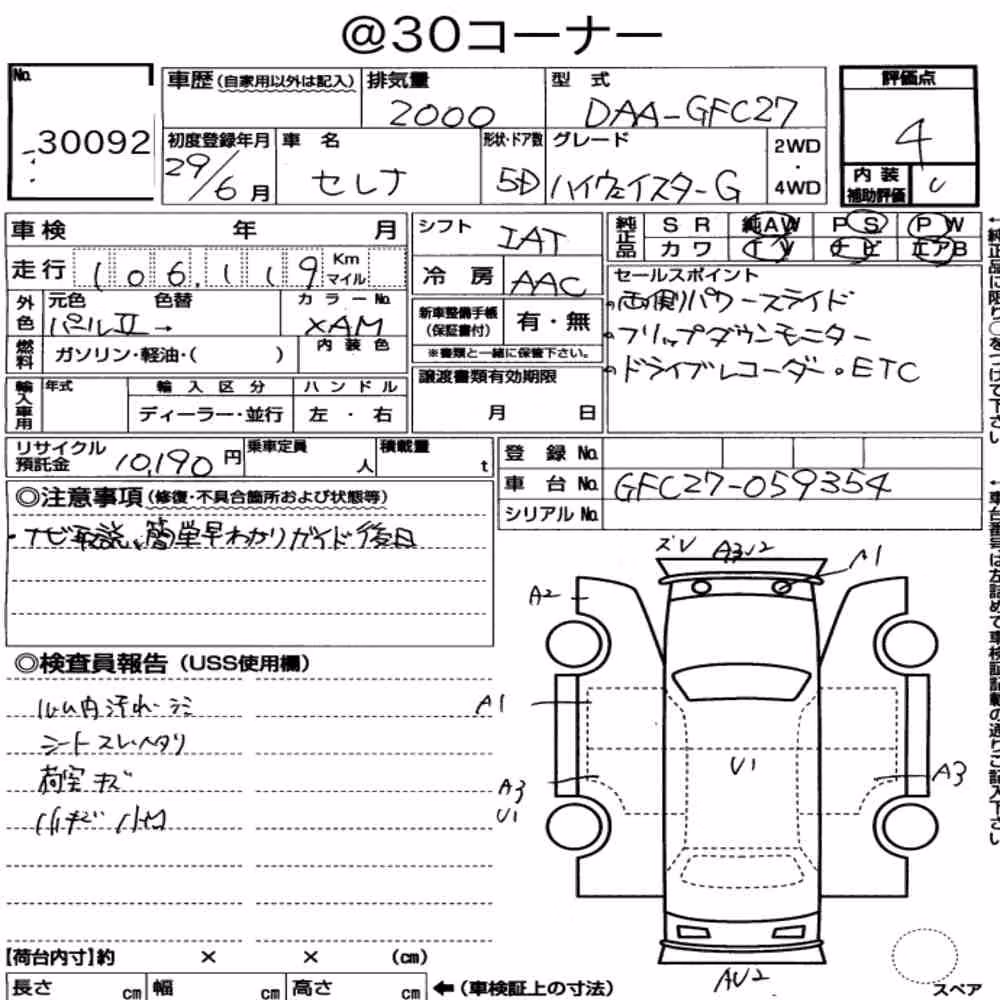 @30コーナー
No. 30092
車歴(自家用以外は記入) 排気量 2000 型式 DAA-GFC27
初度登録年月 29/6月 車名 セレナ 形状・ドア数 5D グレード ハイウェイスターG 2WD・4WD
評価点 4
内装補助評価
車検 年 月
走行 106,119 Km マイル
外色 元色 パールⅡ→ 色替 カラーNo. XAM
燃料 ガソリン・軽油・( ) 内装色
輸入車用 年式 輸入区分 ディーラー・並行 ハンドル 左・右
シフト IAT
冷房 AAC
新車整備手帳(保証書付) 有・無
※書類と一緒に保管下さい。
譲渡書類有効期限 月 日
純正品 SR 純AW PS PW
カワ TV ナビ エアB
セールスポイント
・両側パワースライド
・フリップダウンモニター
・ドライブレコーダー・ETC
←純正品に限り○をつけて下さい
リサイクル預託金 10,190円 乗車定員 人 積載量 t
登録No.
車台No. GFC27-059354
シリアルNo.
←車台番号は左詰めで車検証記載の通りご記入下さい
◎注意事項(修復・不具合箇所および状態等)
・ナビ取説、簡単早わかりガイド後日
◎検査員報告(USS使用欄)
ルーム内汚れ・シミ
シートスレ・ヘタリ
荷室キズ
ズレ A3U2 A1
A2
A1
U1
A3 U1
A3
AU2
スペア
【荷台内寸】約 × × (cm)
長さ cm 幅 cm 高さ cm ←(車検証上の寸法)